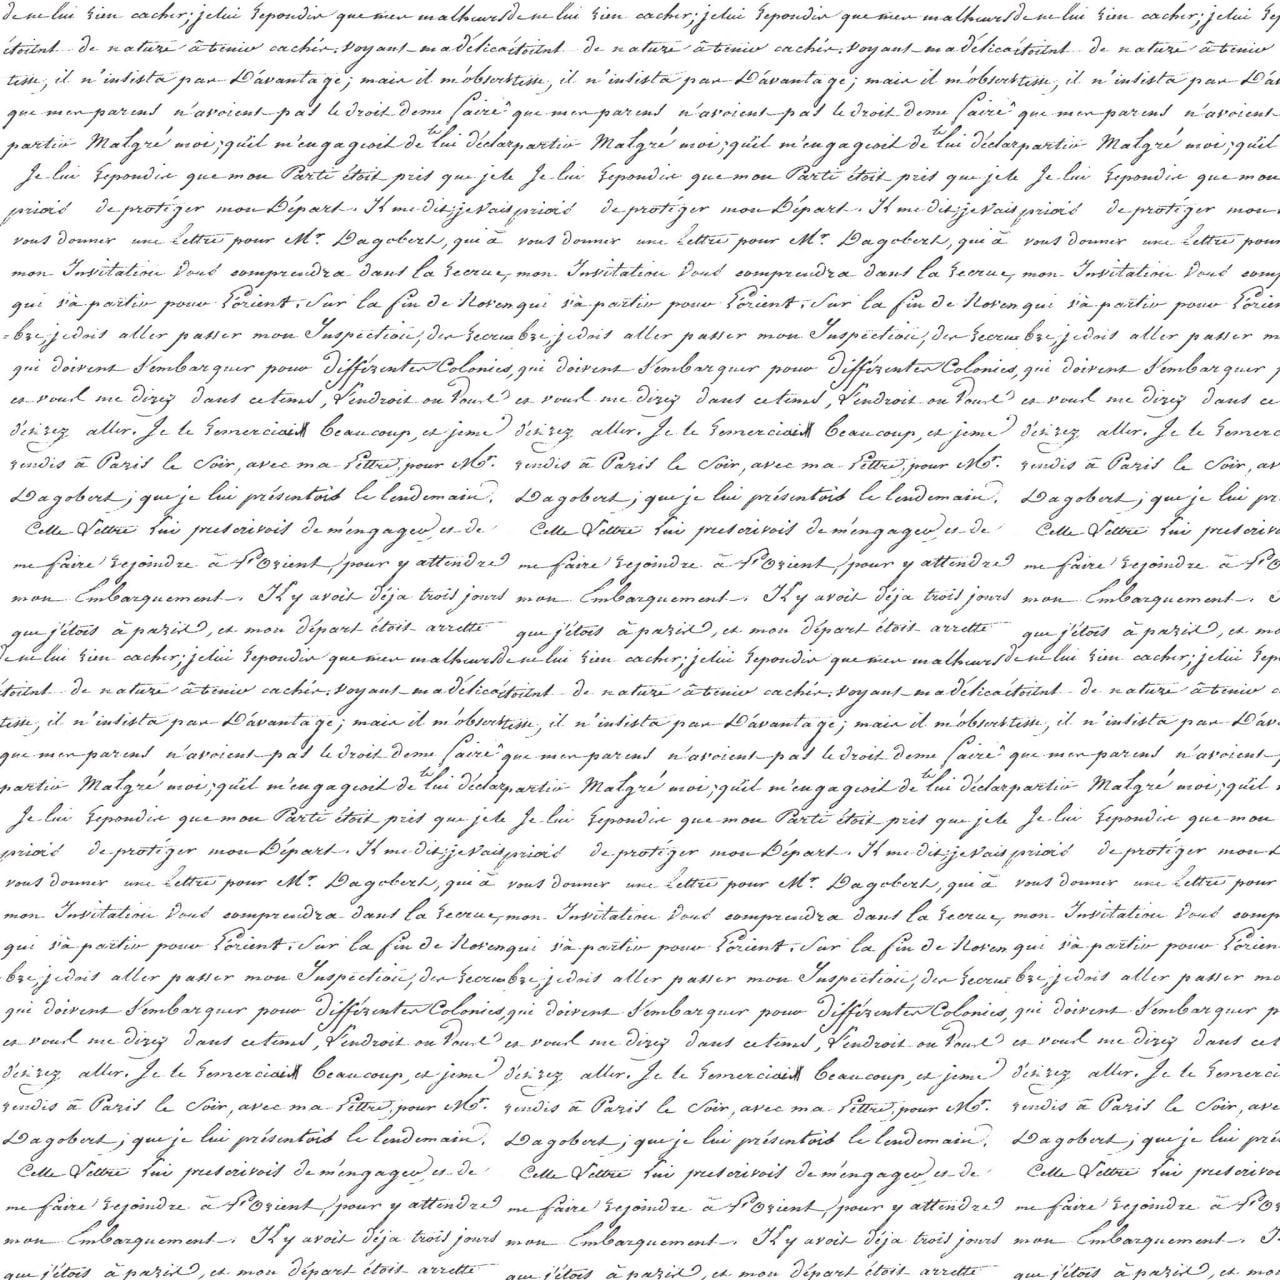 de ne lui rien cacher; je lui repondis que mes malheurs de ne lui rien cacher; je lui repondis que mes malheurs de ne lui rien cacher; je lui
étoient de nature à tenir cachés. voyant ma délica étoient de nature à tenir cachés. voyant ma délica étoient de nature à tenir
tesse, il n'insista pas D'avantage; mais il m'observa tesse, il n'insista pas D'avantage; mais il m'observa tesse, il n'insista pas
que mes parens n'avoient pas le droit de me faire que mes parens n'avoient pas le droit de me faire que mes parens n'avoient
partir Malgré moi; qu'il m'engageoit de te lui déclar partir Malgré moi; qu'il m'engageoit de te lui déclar partir Malgré moi; qu'il
Je lui repondis que mon Parti étoit pris que je le Je lui repondis que mon Parti étoit pris que je le Je lui repondis que mon
priois de protéger mon Départ. Il me dit; je vais priois de protéger mon Départ. Il me dit; je vais priois de protéger mon
vous donner une Lettre pour Mr. Dagobert, qui à vous donner une Lettre pour Mr. Dagobert, qui à vous donner une Lettre pour
mon Invitation vous comprendra dans la recrue, mon Invitation vous comprendra dans la recrue, mon Invitation vous
qui va partir pour Lorient. Sur la fin de Novem qui va partir pour Lorient. Sur la fin de Novem qui va partir pour
-bre, je dois aller passer mon Inspection, des recrues bre, je dois aller passer mon Inspection, des recrues bre, je dois aller passer
qui doivent s'embarquer pour différentes Colonies, qui doivent s'embarquer pour différentes Colonies, qui doivent s'embarquer
et vous me direz dans ce tems, l'endroit ou vous et vous me direz dans ce tems, l'endroit ou vous et vous me direz dans ce
désirez aller. Je le remerciai beaucoup, et je me désirez aller. Je le remerciai beaucoup, et je me désirez aller. Je le
rendis à Paris le Soir, avec ma Lettre, pour Mr. rendis à Paris le Soir, avec ma Lettre, pour Mr. rendis à Paris le Soir,
Dagobert; que je lui présentois le lendemain. Dagobert; que je lui présentois le lendemain. Dagobert; que je lui
Cette Lettre lui prescrivois de m'engager, et de Cette Lettre lui prescrivois de m'engager, et de Cette Lettre lui
me faire rejoindre à L'Orient, pour y attendre me faire rejoindre à L'Orient, pour y attendre me faire rejoindre à
mon Embarquement. Il y avoit déja trois jours mon Embarquement. Il y avoit déja trois jours mon Embarquement.
que j'étois à paris, et mon départ étois arretté que j'étois à paris, et mon départ étois arretté que j'étois à paris, et
de ne lui rien cacher; je lui repondis que mes malheurs de ne lui rien cacher; je lui repondis que mes malheurs de ne lui rien cacher; je lui
étoient de nature à tenir cachés. voyant ma délica étoient de nature à tenir cachés. voyant ma délica étoient de nature à tenir
tesse, il n'insista pas D'avantage; mais il m'observa tesse, il n'insista pas D'avantage; mais il m'observa tesse, il n'insista pas
que mes parens n'avoient pas le droit de me faire que mes parens n'avoient pas le droit de me faire que mes parens n'avoient
partir Malgré moi; qu'il m'engageoit de te lui déclar partir Malgré moi; qu'il m'engageoit de te lui déclar partir Malgré moi; qu'il
Je lui repondis que mon Parti étoit pris que je le Je lui repondis que mon Parti étoit pris que je le Je lui repondis que mon
priois de protéger mon Départ. Il me dit; je vais priois de protéger mon Départ. Il me dit; je vais priois de protéger mon
vous donner une Lettre pour Mr. Dagobert, qui à vous donner une Lettre pour Mr. Dagobert, qui à vous donner une Lettre pour
mon Invitation vous comprendra dans la recrue, mon Invitation vous comprendra dans la recrue, mon Invitation vous
qui va partir pour Lorient. Sur la fin de Novem qui va partir pour Lorient. Sur la fin de Novem qui va partir pour
-bre, je dois aller passer mon Inspection, des recrues bre, je dois aller passer mon Inspection, des recrues bre, je dois aller passer
qui doivent s'embarquer pour différentes Colonies, qui doivent s'embarquer pour différentes Colonies, qui doivent s'embarquer
et vous me direz dans ce tems, l'endroit ou vous et vous me direz dans ce tems, l'endroit ou vous et vous me direz dans
désirez aller. Je le remerciai beaucoup, et je me désirez aller. Je le remerciai beaucoup, et je me désirez aller. Je le
rendis à Paris le Soir, avec ma Lettre, pour Mr. rendis à Paris le Soir, avec ma Lettre, pour Mr. rendis à Paris le Soir,
Dagobert; que je lui présentois le lendemain. Dagobert; que je lui présentois le lendemain. Dagobert; que je lui
Cette Lettre lui prescrivois de m'engager, et de Cette Lettre lui prescrivois de m'engager, et de Cette Lettre lui
me faire rejoindre à L'Orient, pour y attendre me faire rejoindre à L'Orient, pour y attendre me faire rejoindre à
mon Embarquement. Il y avoit déja trois jours mon Embarquement. Il y avoit déja trois jours mon Embarquement.
que j'étois à paris, et mon départ étois arretté que j'étois à paris, et mon départ étois arretté que j'étois à paris, et